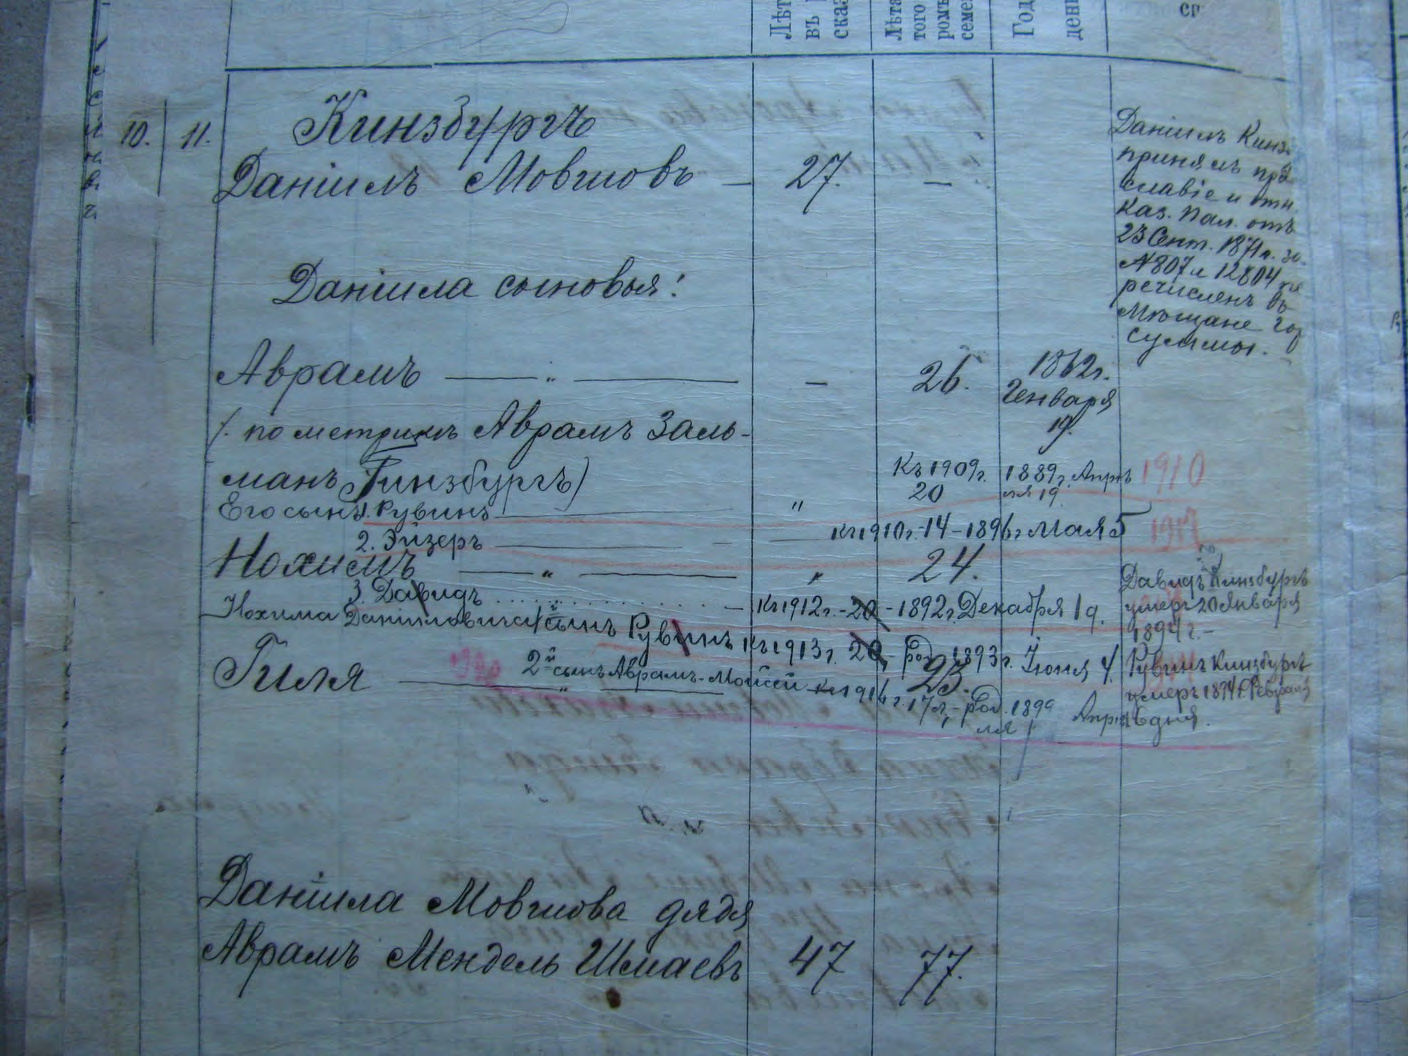 Лѣт
въ
сказ
Лѣта
того
ромъ
семе
Год
ден
10. 11. Кинзбургъ
Даніилъ Мовшовъ — 27. —
Даніилъ Кинз
принялъ пра
славіе и отн.
Каз. Пал. отъ
23 Сент. 1871 г. за
№ 807 и 12804 пе
речисленъ въ
Мѣщане гор
Суммы.
Даніила сыновья:
Аврамъ — „ — — 26. 1862 г.
Генваря
19.
(по метрикѣ Аврамъ Заль-
манъ Гинзбургъ)
Къ 1909 г. 1889 г. Апрѣ 1910
20 ля 19
Его сынъ 1. Рувинъ „
2. Эйзеръ — — къ 1910 г. - 14 - 1896 г. Мая 5 1917
Нохимъ — „ — „ 24.
3. Давидъ — къ 1912 г. - 20 - 1892 г. Декабря 19.
Давидъ Кинзбургъ
умеръ 20 Января
1894 г. -
Нохима Даниловича 1/ сынъ Рувинъ къ 1913 г. 20 - Род. 1893 г. Іюня 4.
Рувинъ Кинзбургъ
умеръ 1894 г. Февраля
6 дня.
2й сынъ Аврамъ-Мойсей къ 1916 г. 17 л. - род. 1899 Апрѣ
ля
Гиля — „ — 23.
Даніила Мовшова дядя
Аврамъ Мендель Шмаевъ 47 77.